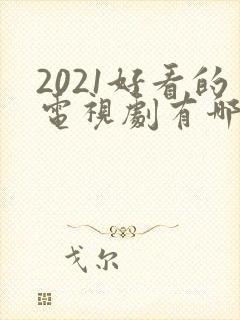 2021好看的
電視劇有哪
戈尔